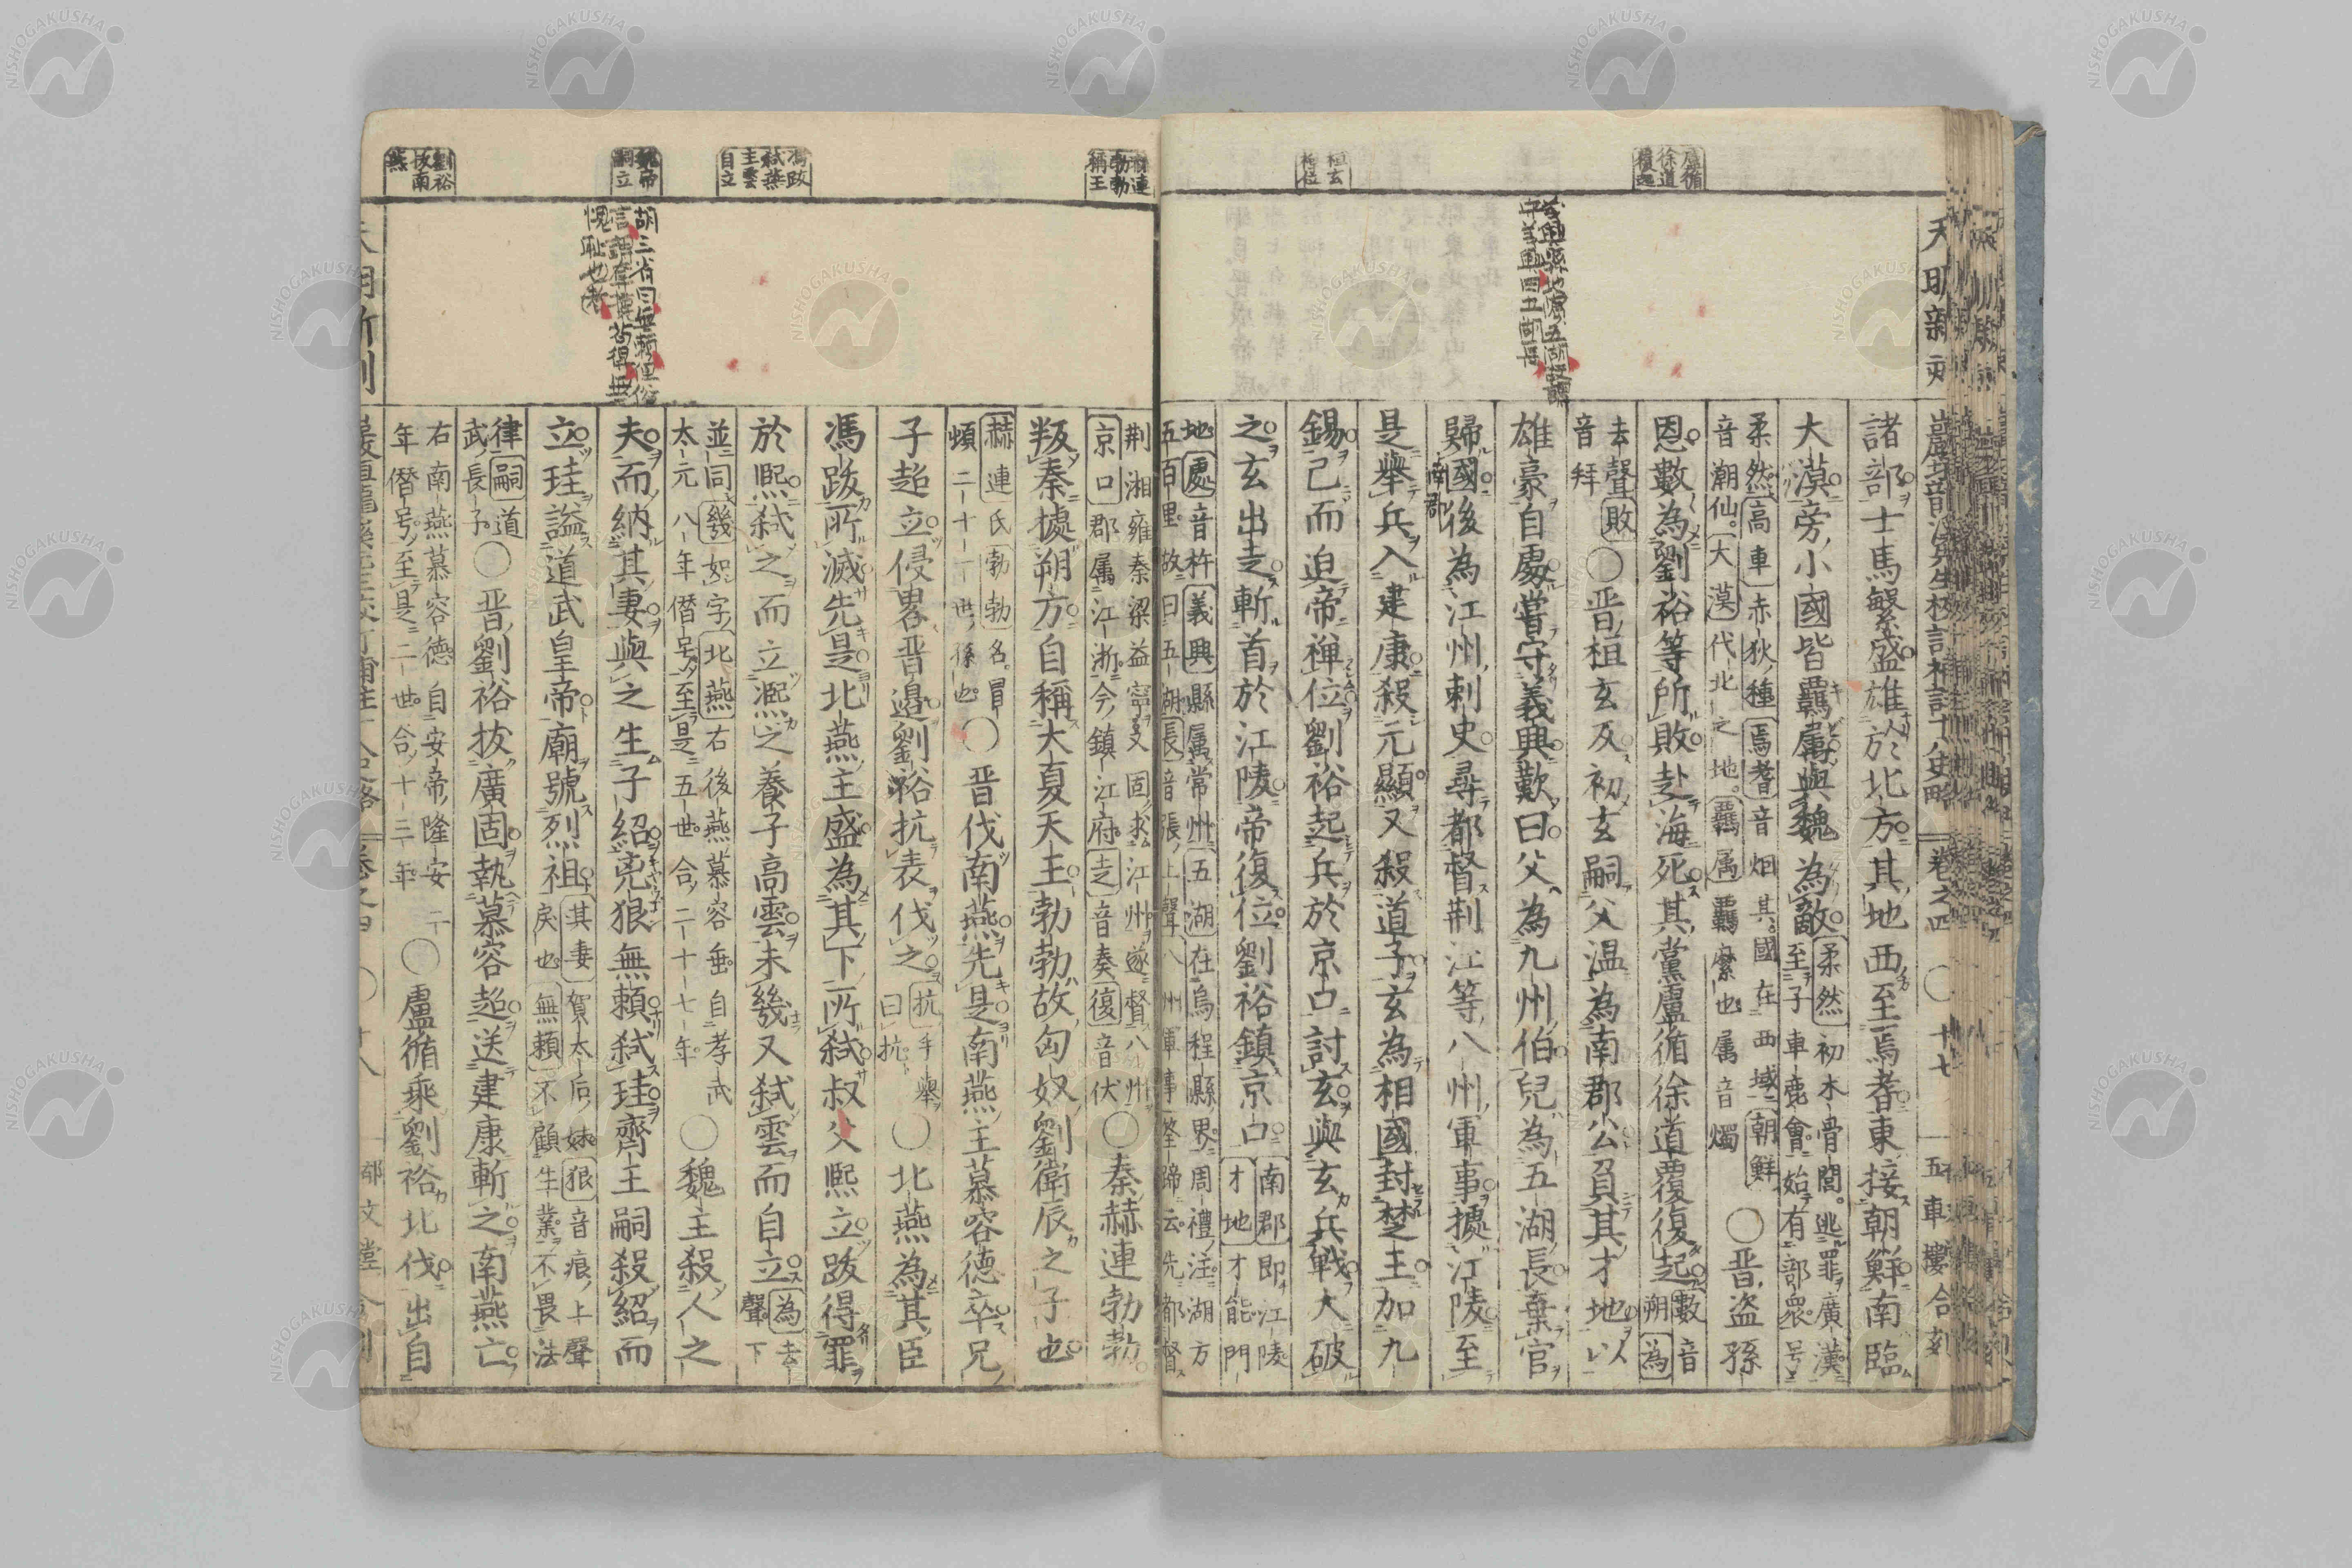 盧循
徐道
覆起
桓玄
極位
天明新刻
巖垣龍渓先生校訂標註十八史略 卷之四 〇 十七 五車樓合刻
諸部士馬繁盛雄於北方其地西至焉耆東接朝鮮南臨
大漠旁小國皆羈屬與魏為敵
柔然初木骨閭逃罪廣漠
至子車鹿會始有部衆号
柔然高車赤狄種焉耆音烟其國在西域朝鮮
音潮仙大漠代北之地羈属羈縻也属音燭
〇晋盗孫
恩數為劉裕等所敗赴海死其黨盧循徐道覆復起
數音
朔為
去聲敗
音拜
〇晋桓玄反初玄嗣父温為南郡公負其才地以
雄豪自處嘗守義興歎曰父為九州伯兒為五湖長棄官
歸國後為江州刺史尋都督荊江等八州軍事據江陵至
南郡
是舉兵入建康殺元顯又殺道子玄為相國封楚王加九
錫已而迫帝禅位劉裕起兵於京口討玄與玄兵戰大破
之玄出走斬首於江陵帝復位劉裕鎮京口
南郡即江陵
才地才能門
地處音杵義興縣属常州五湖在烏程縣界周禮注湖方
五百里故曰五湖長音張上聲八州軍事
赫連
勃勃
稱王
馮跋
弑燕
主雲
自立
魏帝
嗣立
劉裕
拔南
燕
胡三省曰無頼俚俗
言謂奪攘苟得無
愧耻也者
荆湘雍秦梁益寧又固求江州遂督八州
京口郡属江浙今鎮江府走音奏復音伏
〇秦赫連勃勃
叛秦據朔方自稱大夏天王勃勃故匈奴劉衛辰之子也
赫連氏勃勃名冒
頓二十一世孫也
〇晋伐南燕先是南燕主慕容德卒兄
子超立侵畧晋邉劉裕抗表伐之
抗手舉
曰抗
〇北燕為其臣
馮跋所滅先是北燕主盛為其下所弑叔父熙立跋得罪
於熙弑之而立熙之養子高雲未幾又弑雲而自立
為去
聲下
並同幾如字北燕右後燕慕容垂自孝武
太元八年僭号至是五世合二十七年
〇魏主殺人之
夫而納其妻與之生子紹兇狠無頼弑珪齊王嗣殺紹而
立珪謚道武皇帝廟號烈祖
其妻賀太后妹狠音痕上聲
戻也無頼不顧生業不畏法
律嗣道
武長子
〇晋劉裕拔廣固執慕容超送建康斬之南燕亡
右南燕慕容德自安帝隆安二
年僭号至是二世合十三年
〇盧循乘劉裕北伐出自